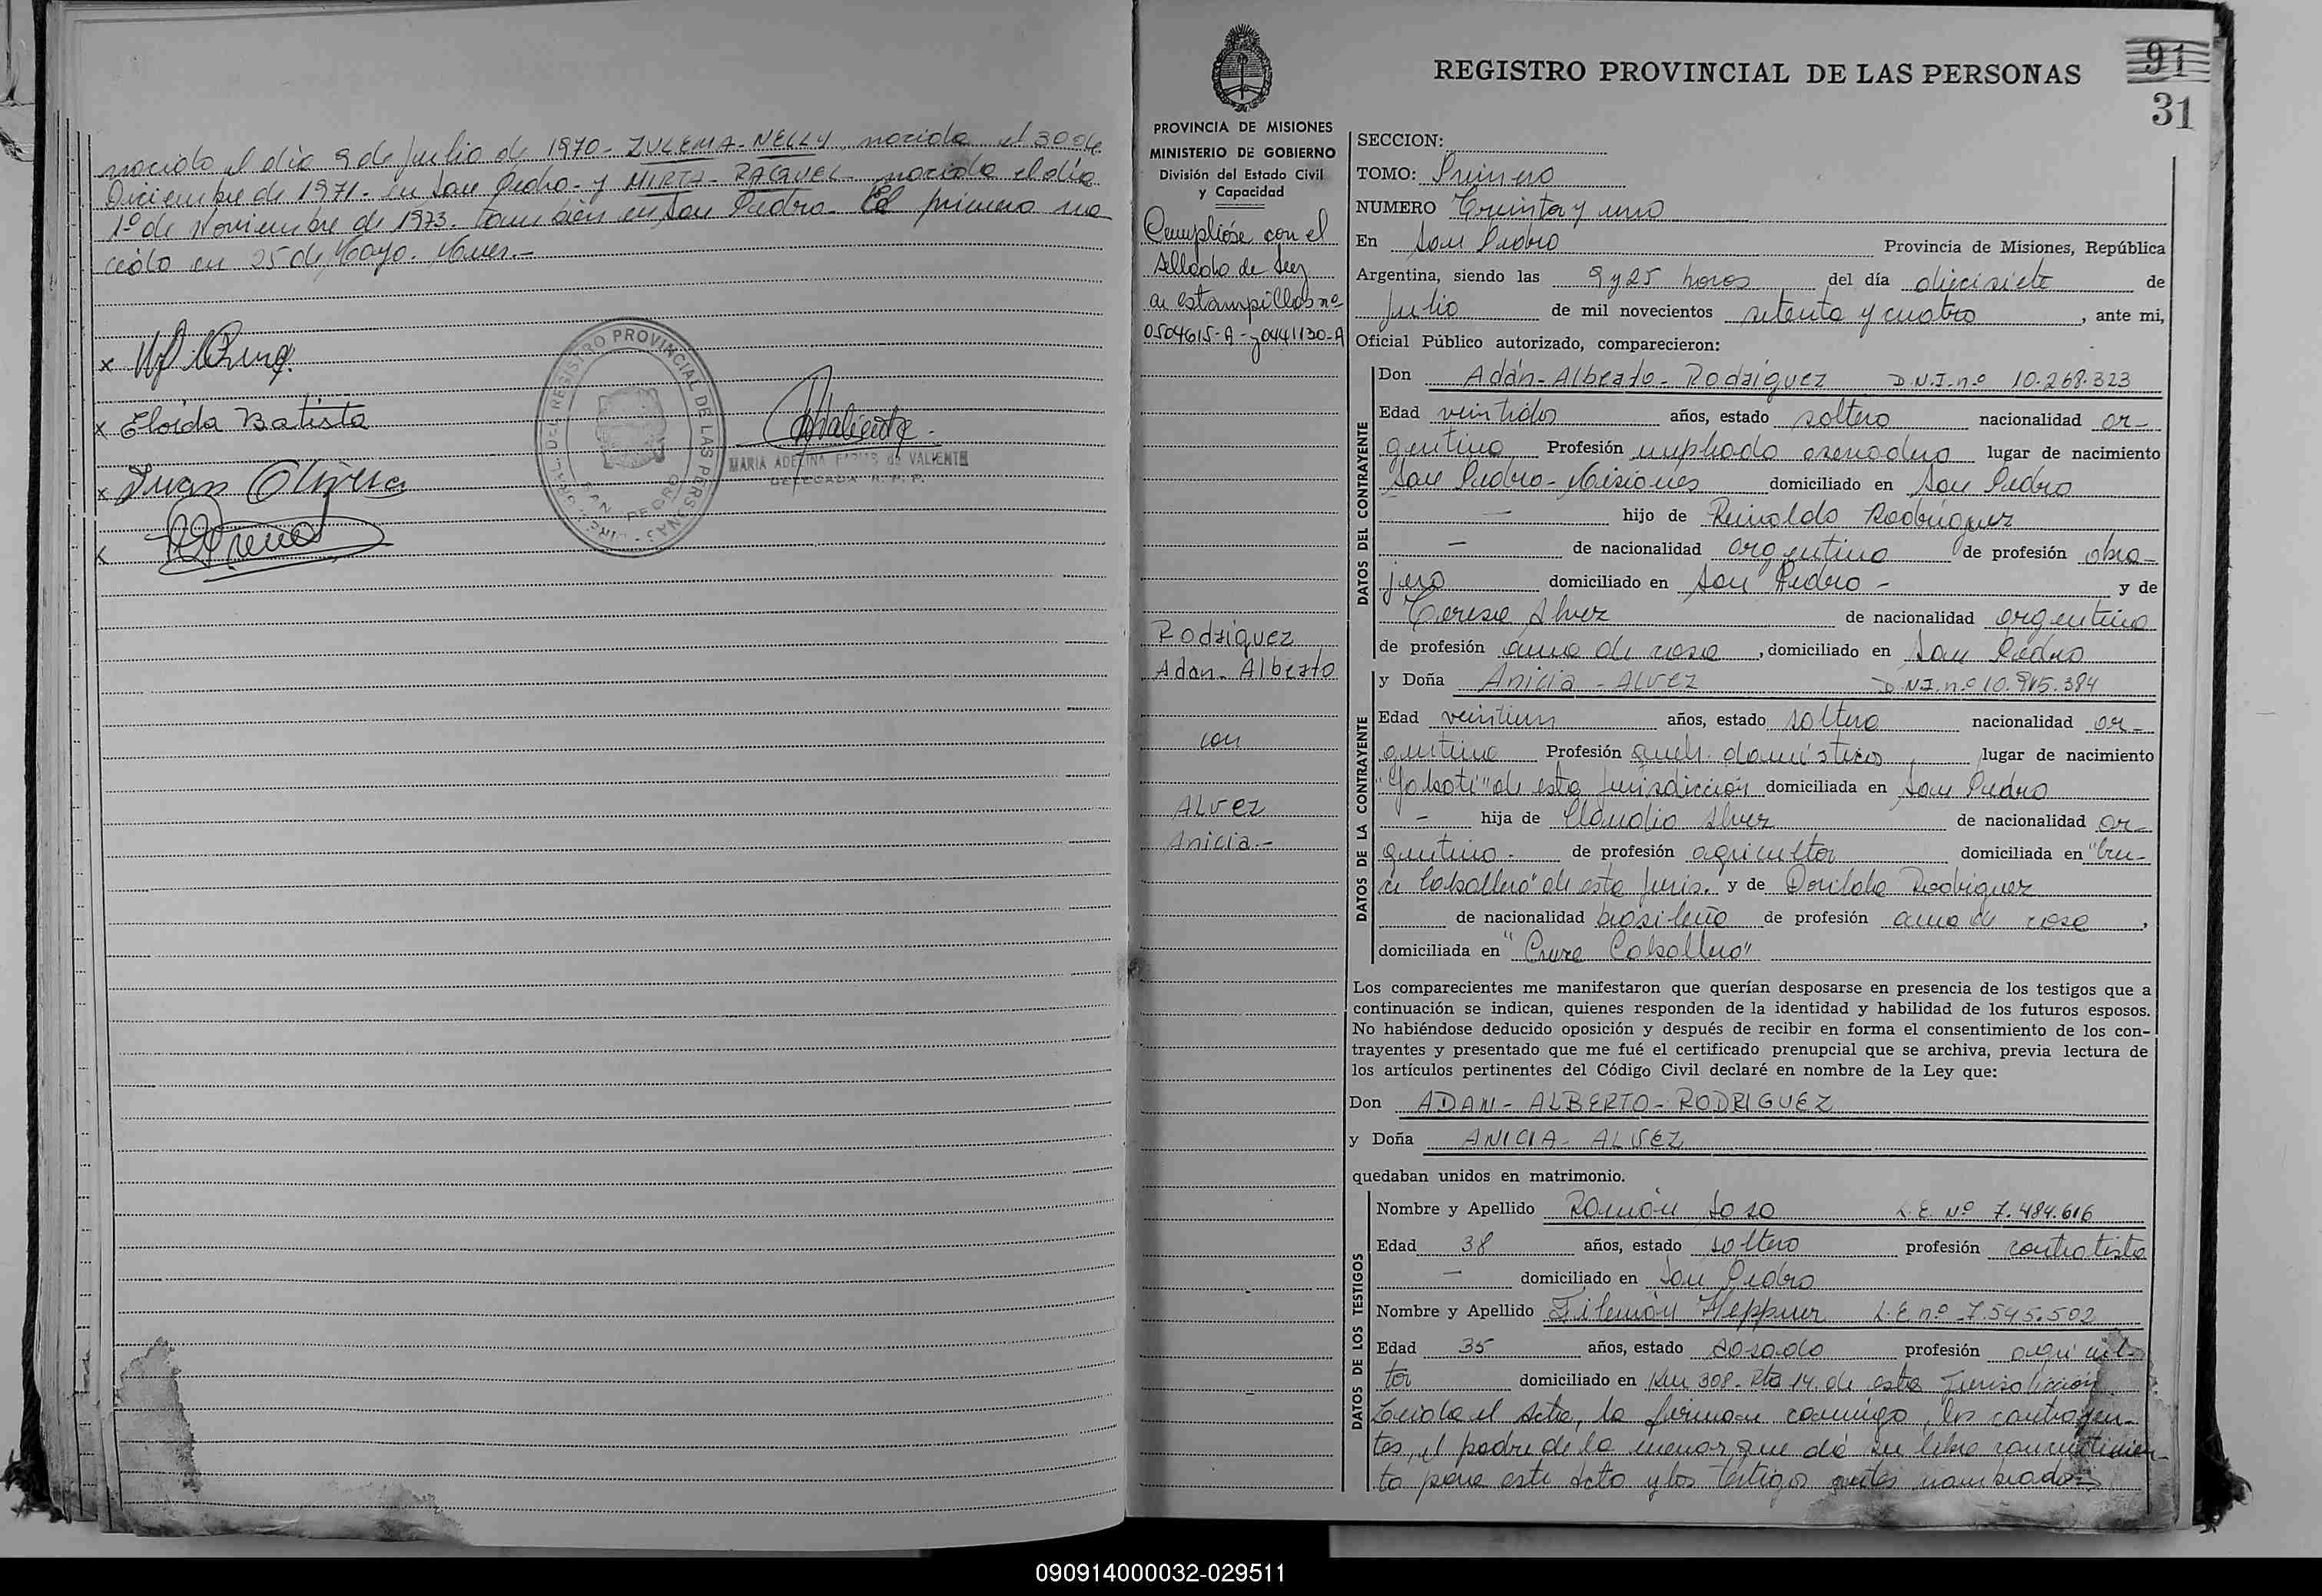 nacido el día 9 de Julio de 1970 - ZULEMA - NELLY, nacida el 30 de
Diciembre de 1971 - en San Pedro - y MIRTA - RAQUEL - nacida el día
1º de Noviembre de 1973. También en San Pedro - El primero na-
cido en 25 de Mayo. Mnes. -
x
x Eloida Batista
x Juan Olivera
x
REGISTRO PROVINCIAL DE LAS PERSONAS
SAN PEDRO
MARIA ADELINA de VALIENTE
DELEGADA R. P. P.
91
31
REGISTRO PROVINCIAL DE LAS PERSONAS
PROVINCIA DE MISIONES
MINISTERIO DE GOBIERNO
División del Estado Civil
y Capacidad
Cumplióse con el
sellado de Ley
en estampillas nº
0504615-A - y 0441130-A
Rodriguez
Adan - Alberto
con
Alvez
Anicia. -
SECCION:
TOMO: Primero
NUMERO Treinta y uno
En San Pedro Provincia de Misiones, República
Argentina, siendo las 9 y 25 horas del día diecisiete de
Julio de mil novecientos setenta y cuatro, ante mi,
Oficial Público autorizado, comparecieron:
DATOS DEL CONTRAYENTE
Don Adán - Alberto - Rodriguez D.N.I. nº 10.268.323
Edad veintidos años, estado soltero nacionalidad ar-
gentino Profesión empleado lugar de nacimiento
San Pedro - Misiones domiciliado en San Pedro
- hijo de Reinaldo Rodriguez
- de nacionalidad argentino de profesión obra-
jero domiciliado en San Pedro - y de
Teresa Alvez de nacionalidad argentina
de profesión ama de casa, domiciliado en San Pedro
DATOS DE LA CONTRAYENTE
y Doña Anicia - Alvez D.N.I. nº 10.915.384
Edad veintiun años, estado soltera nacionalidad ar-
gentina Profesión queh. domésticos lugar de nacimiento
"Yaboti" de esta jurisdicción domiciliada en San Pedro
- hija de Claudio Alvez de nacionalidad ar-
gentino - de profesión agricultor domiciliada en "Cru-
ce Caballero" de esta juris. y de Dorilda Rodriguez
de nacionalidad brasileña de profesión ama de casa,
domiciliada en "Cruce Caballero"
Los comparecientes me manifestaron que querían desposarse en presencia de los testigos que a
continuación se indican, quienes responden de la identidad y habilidad de los futuros esposos.
No habiéndose deducido oposición y después de recibir en forma el consentimiento de los con-
trayentes y presentado que me fué el certificado prenupcial que se archiva, previa lectura de
los artículos pertinentes del Código Civil declaré en nombre de la Ley que:
Don ADAN - ALBERTO - RODRIGUEZ
y Doña ANICIA - ALVEZ
quedaban unidos en matrimonio.
DATOS DE LOS TESTIGOS
Nombre y Apellido Ramón Sosa L.E. Nº 7.484.616
Edad 38 años, estado soltero profesión contratista
- domiciliado en San Pedro
Nombre y Apellido Filemón Heppner L.E. nº 7.545.502
Edad 35 años, estado casado profesión agricul-
tor domiciliado en Km 308 - Rta 14. de esta Jurisdicción
Leida el Acta, la firman conmigo, los contrayen-
tes, el padre de la menor que dá su libre consentimien-
to para este acto y los testigos antes nombrados
090914000032-029511